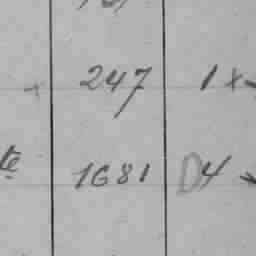 247 1x
1681 D4